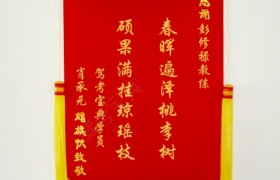 感谢彭修禄教练
春晖遍泽桃李树
硕果满挂琼瑶枝
驾考宝典学员
肖承元 赠旗恭致敬